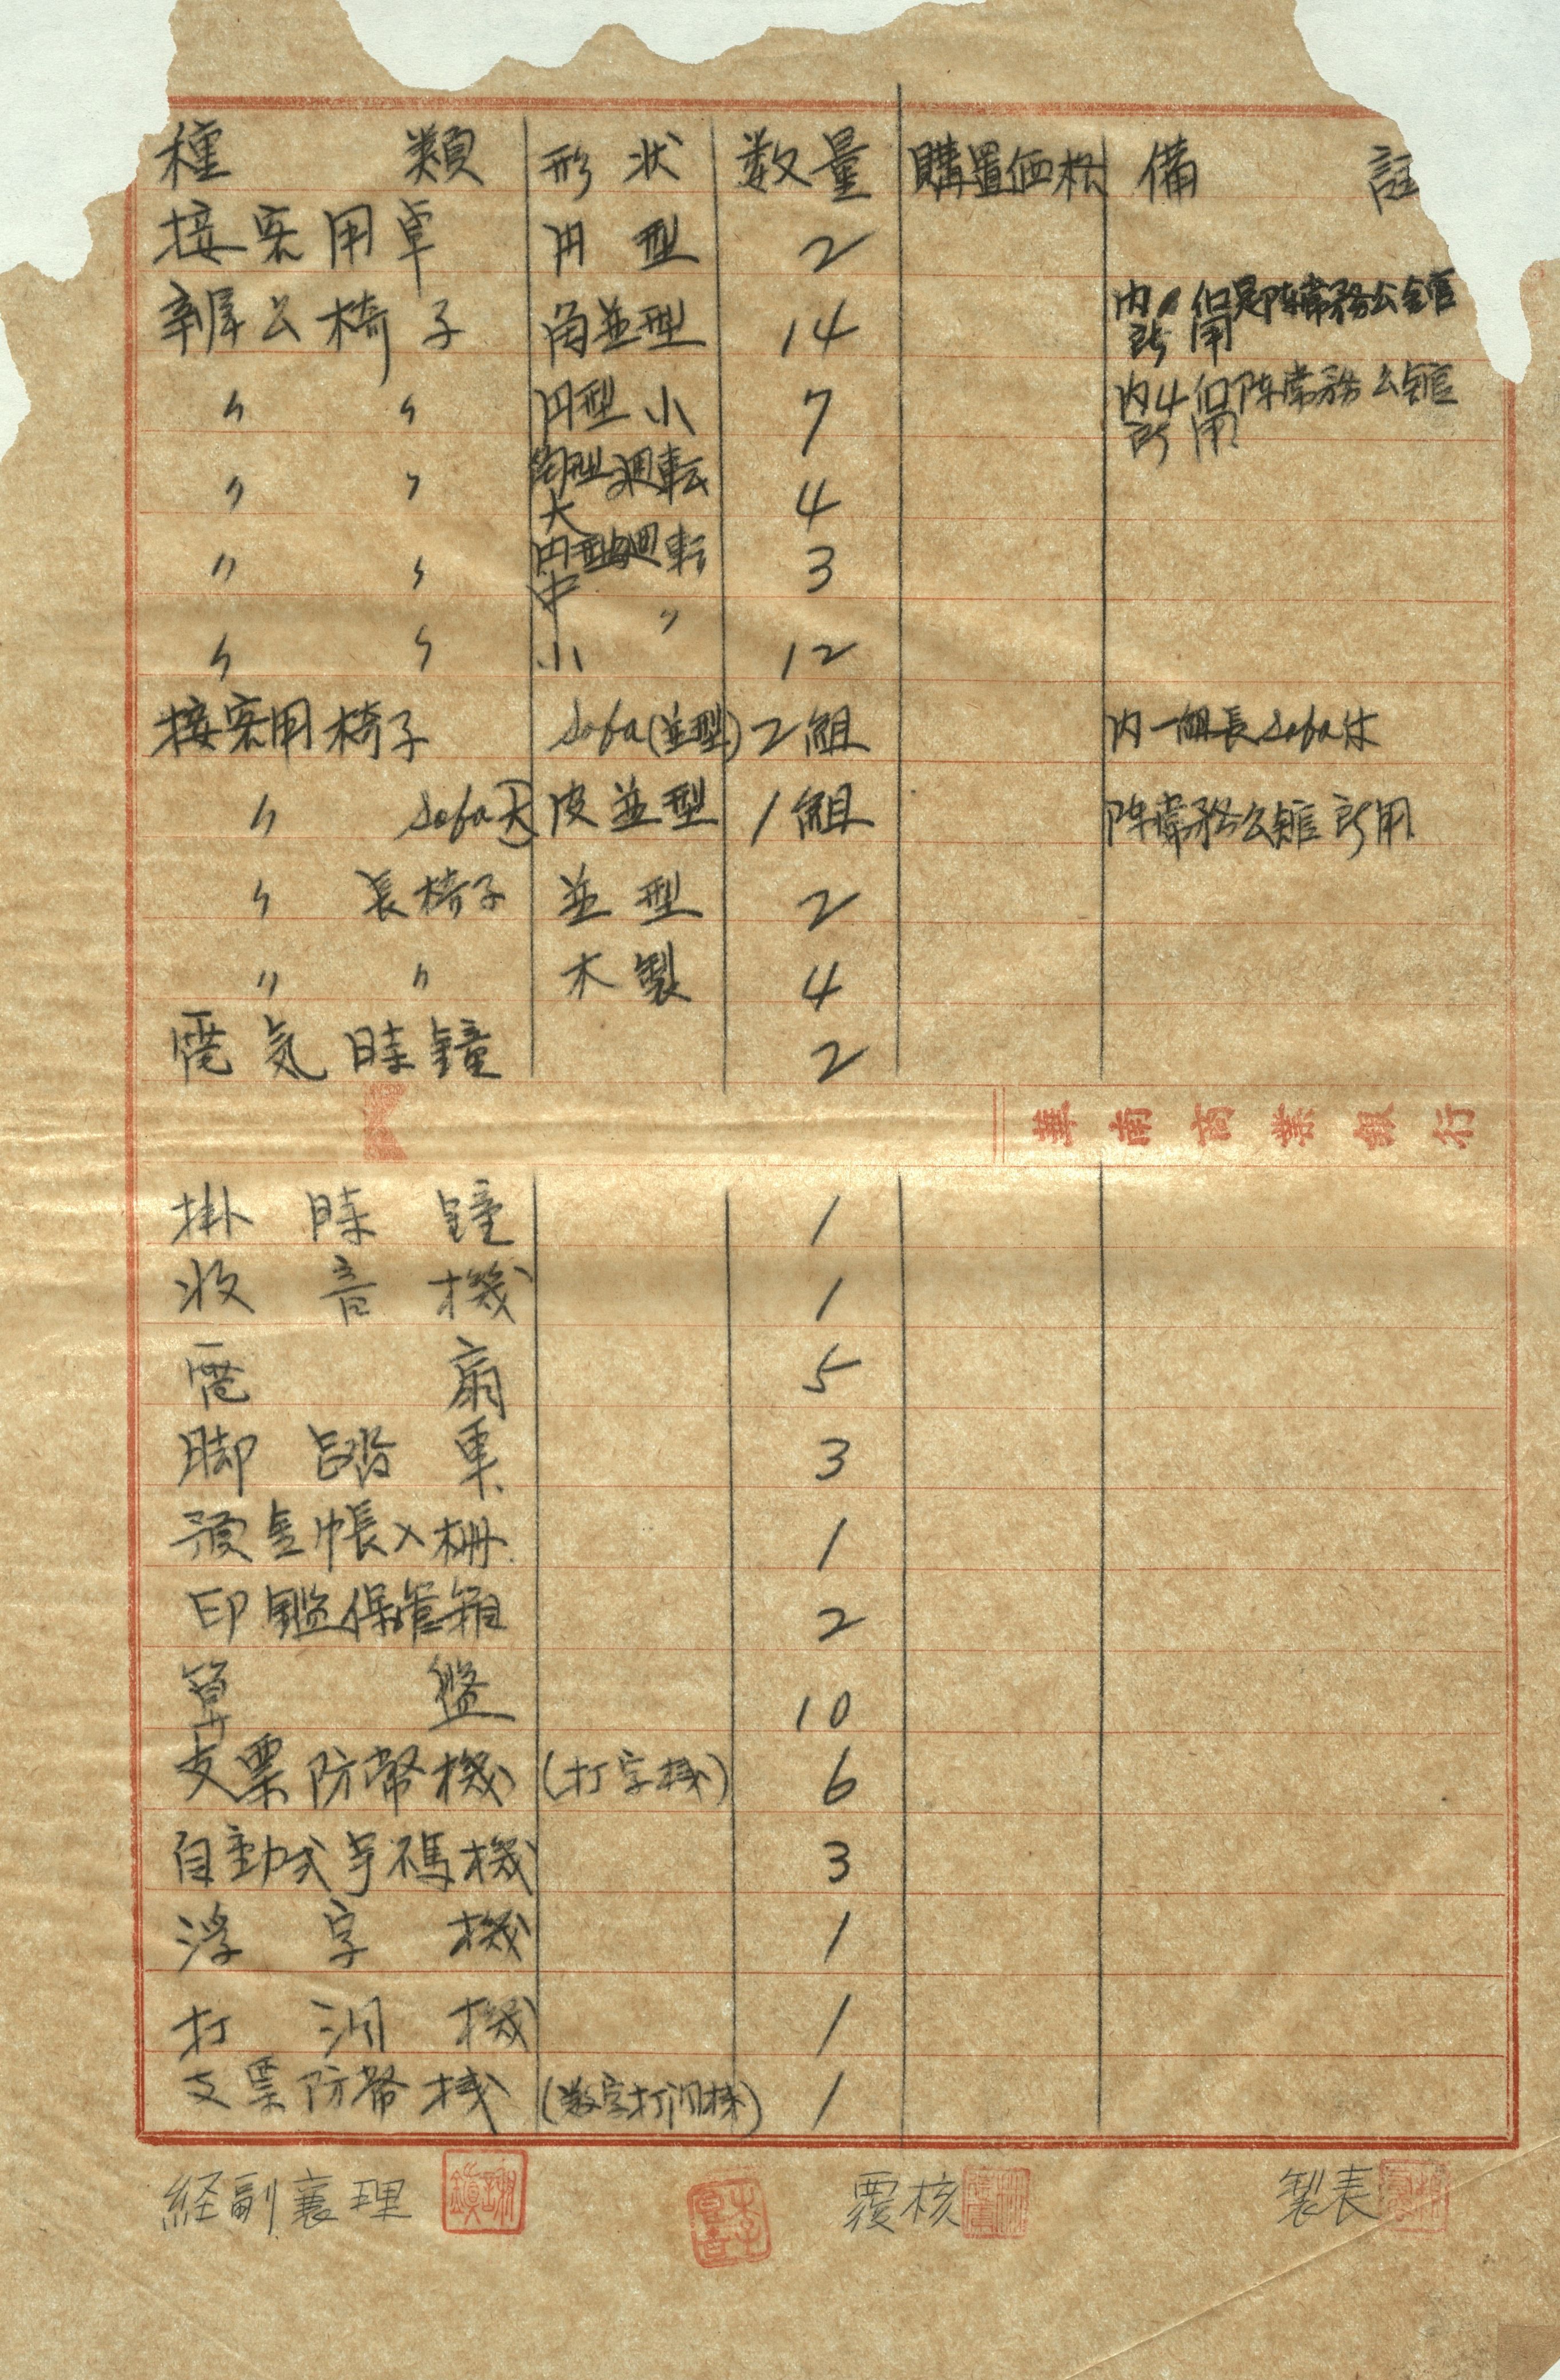 種類 形状 数量 購置価格 備註
接客用卓 円型 2
辦公椅子 角並型 14 内 個是陳常務公館所用
〃 〃 円型小 7 内4個陳常務公館所用
〃 〃 型廻転大 4
〃 〃 円型廻転中 3
〃 〃 小 〃 12
接客用椅子 Sofa(並型) 2組 内一組長Sofa付
〃 Sofa大 皮並型 1組 陳常務公館所用
〃 長椅子 並型 2
〃 〃 木製 4
電気時鐘 2
華南商業銀行
掛時鐘 1
收音機 1
電扇 5
脚踏車 3
預金帳入柵 1
印鑑保管箱 2
算盤 10
支票防弊機 (打字機) 6
自動式字碼機 3
浮字機 1
打洞機 1
支票防弊機 (数字打洞機) 1
経副襄理 覆核 製表